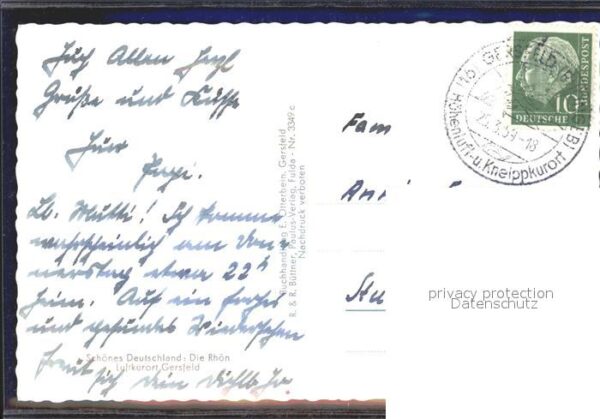 Euch Allen herzl
Grüße und Küsse
Euer
Papi.
Lb. Mutti! Ich komme
wahrscheinlich am Don-
nerstag etwa 22h
heim. Auf ein frohes
und gesundes Wiedersehen
freut
sich dein
Schönes Deutschland: Die Rhön
Luftkurort Gersfeld
Buchhandlung E. Otterbein, Gersfeld
R. & R. Büttner, Paulus-Verlag, Fulda - Nr. 3349 c
Nachdruck verboten
Fam
GERSFELD
Höhenluft-u. Kneippkurort
3.59-18
10
DEUTSCHE BUNDESPOST
privacy protection
Datenschutz